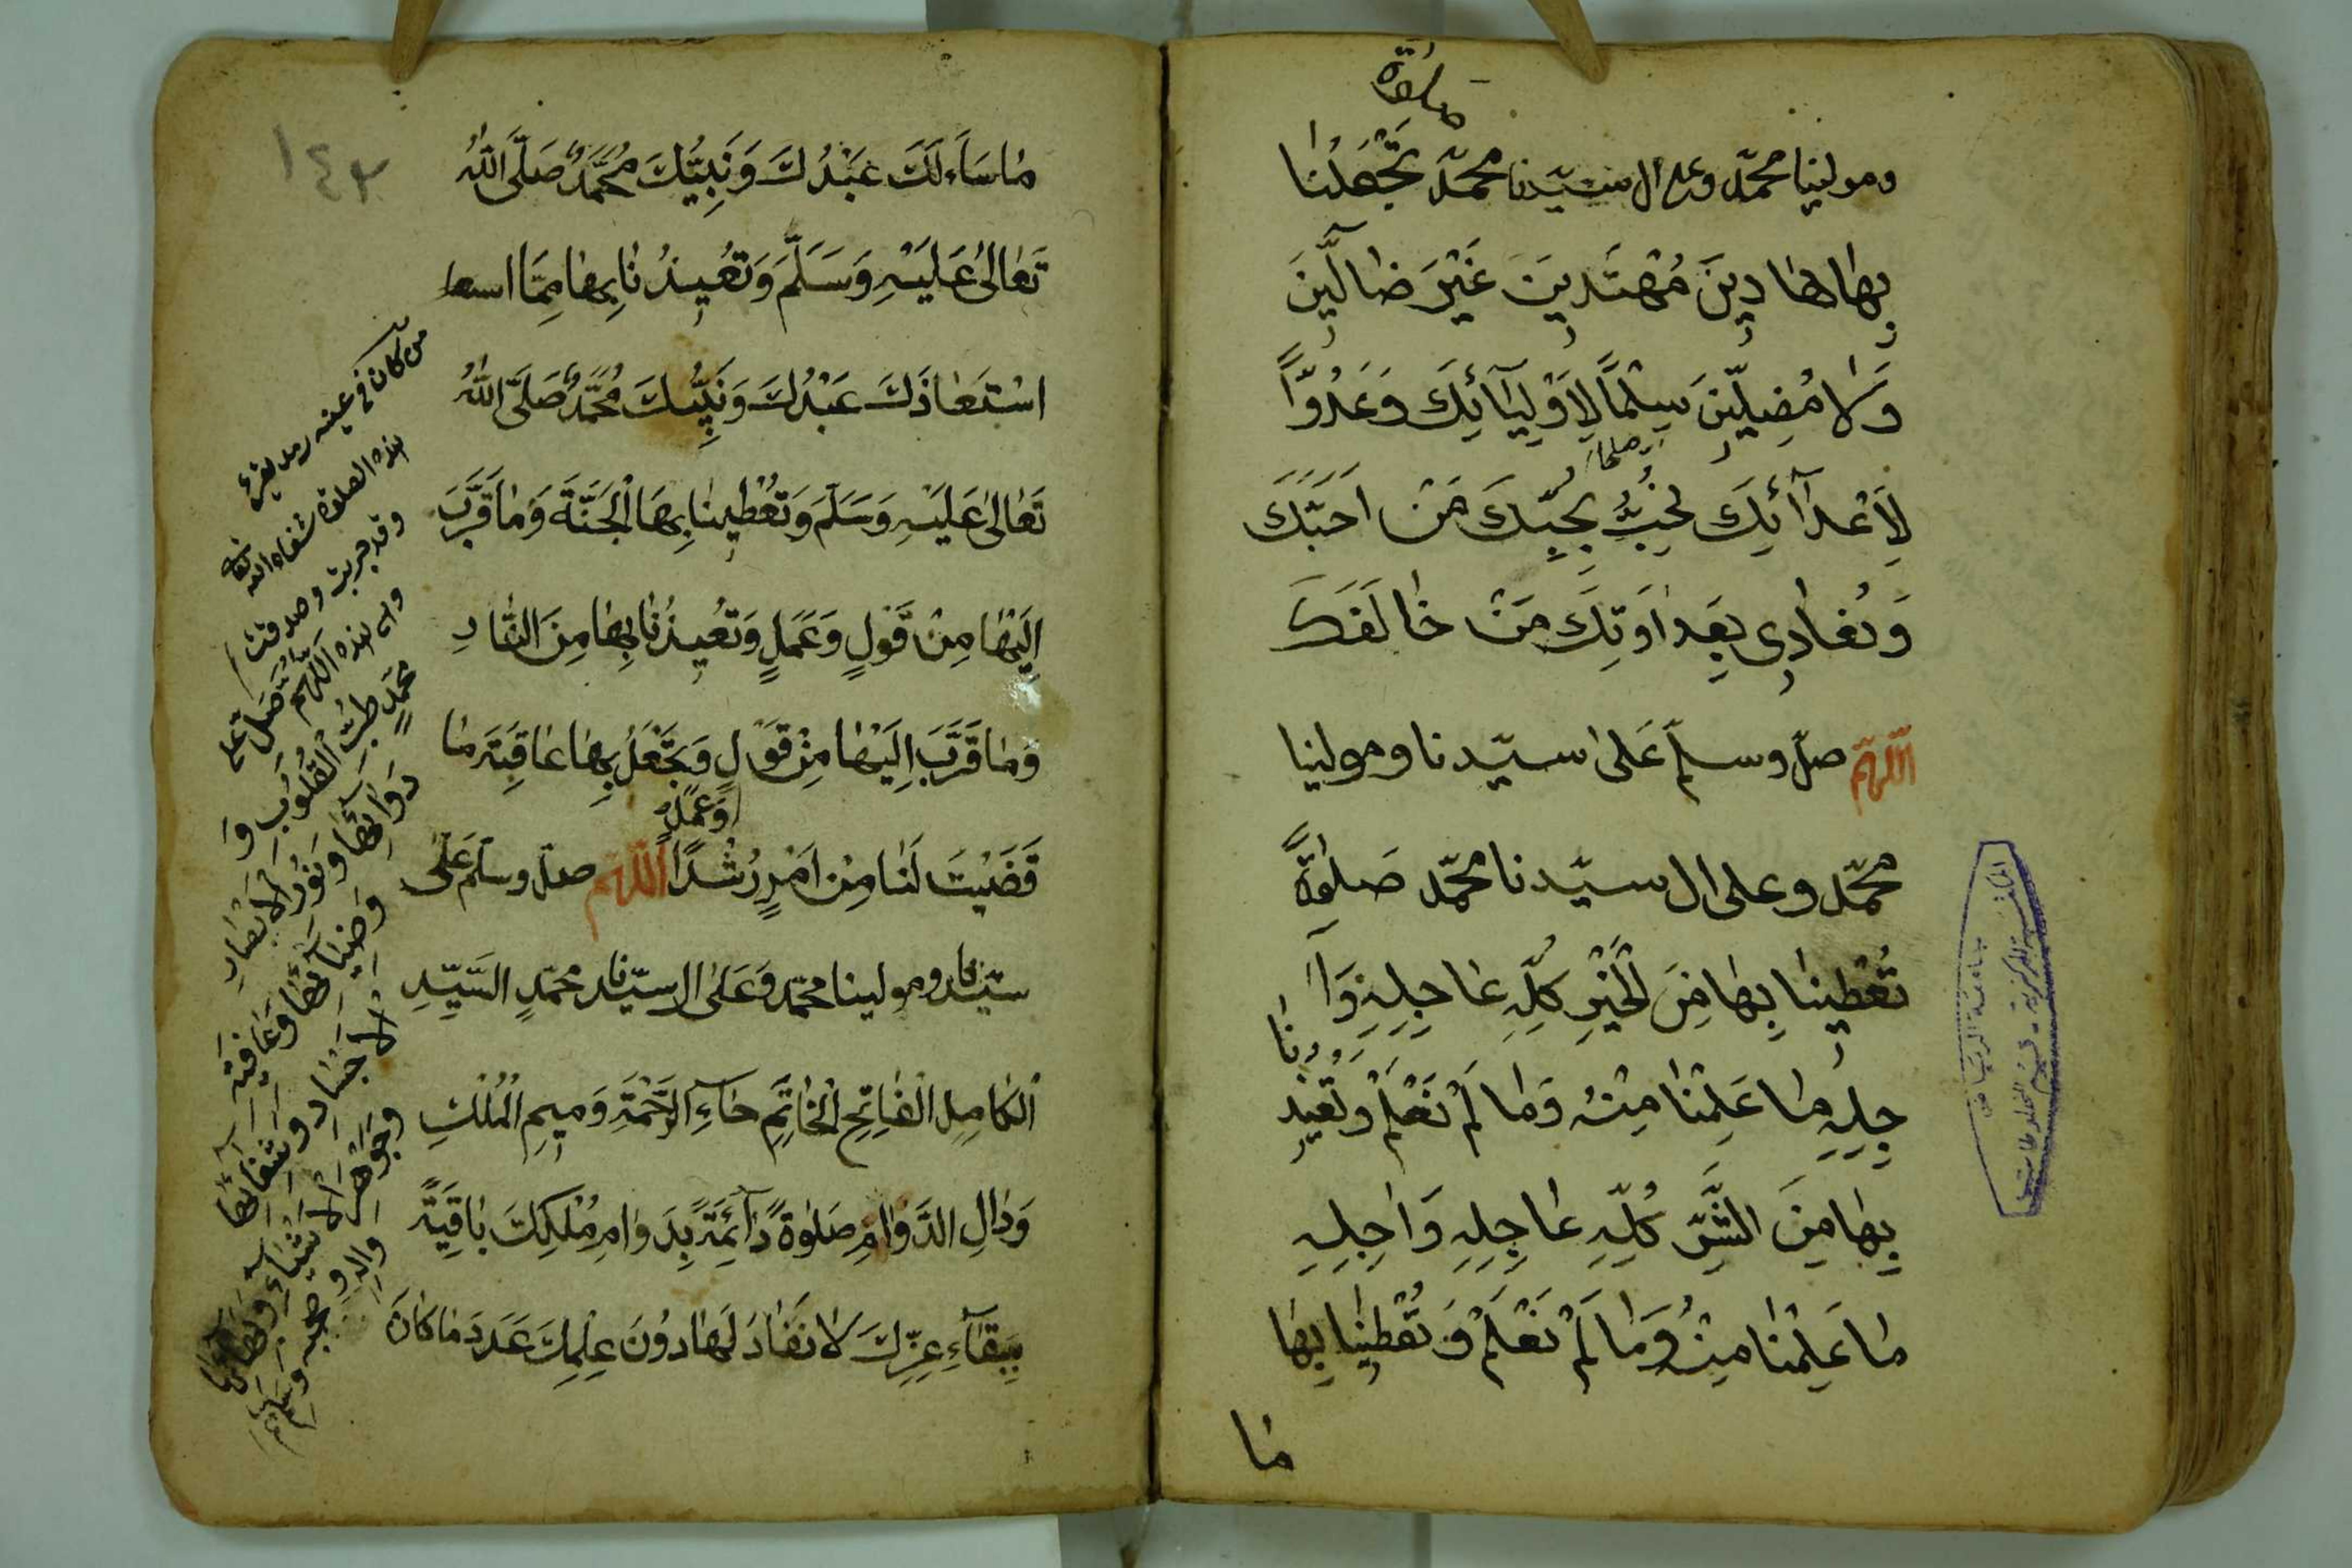 صلوة
ومولينا محمّد وعلى ال سيّدنا محمّد تَجْعَلُنَا
بِهَا هَادِينَ مُهْتَدِينَ غَيْرَ ضَآلِّينَ
وَلَا مُضِلِّينَ سِلْمًا لِاَوْلِيَآئِكَ وَعَدُوًّا
لِاَعْدَآئِكَ نُحِبُّ بِحُبِّكَ مَنْ اَحَبَّكَ
وَنُعَادِى بِعَدَاوَتِكَ مَنْ خَالَفَكَ
اَللّٰهُمَّ صلّ وسلم عَلٰى سيّدنا ومولينا
محمّد وعلى ال سيّدنا محمّد صَلٰوةً
تُعْطِينَا بِهَا مِنَ الْخَيْرِ كُلِّهِ عَاجِلِهِ وَآ
جِلِهِ مَا عَلِمْنَا مِنْهُ وَمَا لَمْ نَعْلَمْ وَتُعِيذُنَا
بِهَا مِنَ الشَّرِّ كُلِّهِ عَاجِلِهِ وَاٰجِلِهِ
مَا عَلِمْنَا مِنْهُ وَمَا لَمْ نَعْلَمْ وَتُعْطِينَا بِهَا
مَا
١٤٢
مَا سَاَءلَكَ عَبْدُكَ وَنَبِيُّكَ مُحَمَّدٌ صَلَّى اللّٰهُ
تَعَالٰى عَلَيْهِ وَسَلَّمَ وَتُعِيذُنَا بِهَا مِمَّا
اسْتَعَاذَكَ عَبْدُكَ وَنَبِيُّكَ مُحَمَّدٌ صَلَّى اللّٰهُ
تَعَالٰى عَلَيْهِ وَسَلَّمَ وَتُعْطِينَا بِهَا الْجَنَّةَ وَمَا قَرَّبَ
اِلَيْهَا مِنْ قَوْلٍ وَعَمَلٍ وَتُعِيذُنَا بِهَا مِنَ النَّارِ
وَمَا قَرَّبَ اِلَيْهَا مِنْ قَوْلٍ وَتَجْعَلُ بِهَا عَاقِبَةَ مَا
وَعَمَلٍ
قَضَيْتَ لَنَا مِنْ اَمْرٍ رُشْدًا اَللّٰهُمَّ صلّ وسلّم عَلٰى
سيّدنا ومولينا محمّد وَعَلٰى ال سيّدنا محمّدٍ السَّيِّدِ
الْكَامِلِ الْفَاتِحِ الْخَاتِمِ حَآءِ الرَّحْمَةِ وَمِيمِ الْمُلْكِ
وَدَالِ الدَّوَامِ صَلٰوةً دَآئِمَةً بِدَوَامِ مُلْكِكَ بَاقِيَةً
بِبَقَآءِ عِزِّكَ لَا نَفَادَ لَهَا دُونَ عِلْمِكَ عَدَدَ مَا كَانَ
من كان فى عينه رمد يقرأ
هذه الصلوة شفاه الله تعالى
وقد جربت وصدقت
هذه اَللّٰهُمَّ صَلِّ عَلٰى
محمدٍ طِبِّ الْقُلُوبِ وَ
دَوَآئِهَا وَنُورِ الْاَبْصَارِ
وَضِيَآئِهَا وَعَافِيَةِ
الْاَجْسَادِ وَشِفَآئِهَا
وَجَوْهَرِ الْاَشْيَآءِ
وَاٰلِهِ وَصَحْبِهِ وَسَلِّمْ